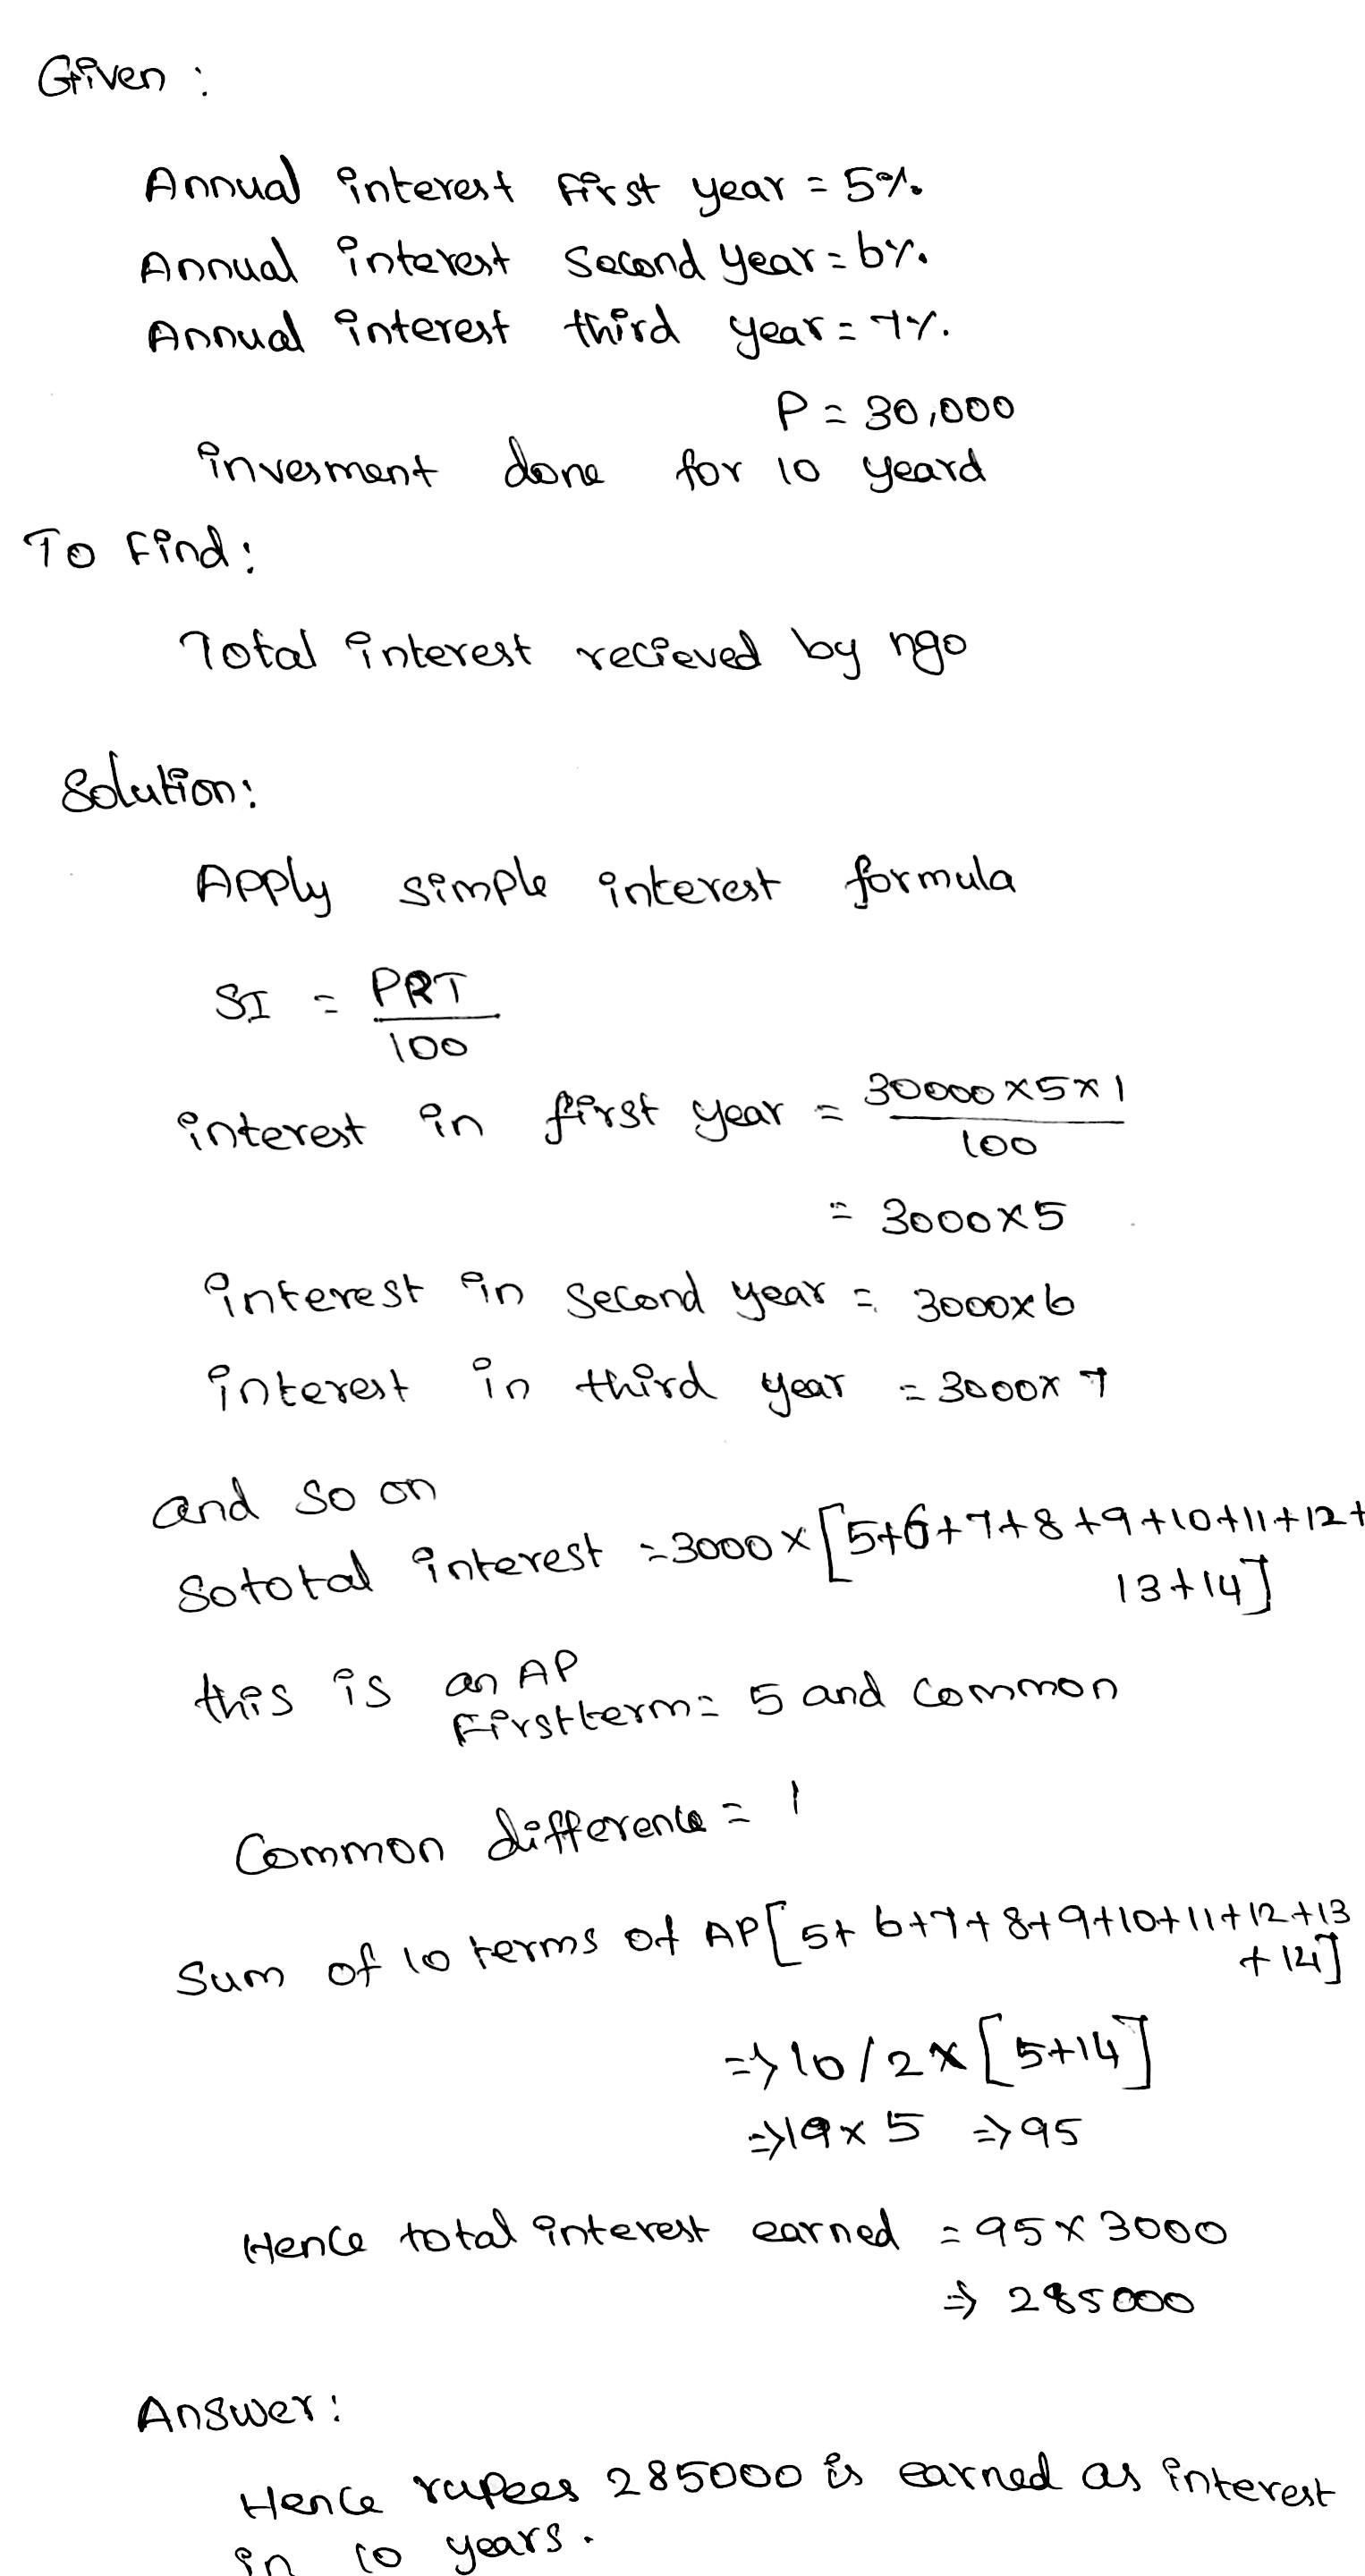 Given :
Annual interest first year = 5%
Annual interest Second year = 6%.
Annual interest third year = 7%.
P = 30,000
invesment done for 10 yeard
To Find:
Total interest recieved by ngo
Solution:
Apply simple interest formula
SI = PRT/100
interest in first year = 30000×5×1/100
= 3000×5
interest in Second year = 3000×6
interest in third year = 3000×7
and so on
So total interest = 3000×[5+6+7+8+9+10+11+12+
13+14]
this is an AP
First term = 5 and common
Common difference = 1
Sum of 10 terms of AP[5+6+7+8+9+10+11+12+13
+14]
⇒ 10/2×[5+14]
⇒ 19×5 ⇒ 95
Hence total interest earned = 95×3000
⇒ 285000
Answer:
Hence rupees 285000 is earned as interest
in 10 years.